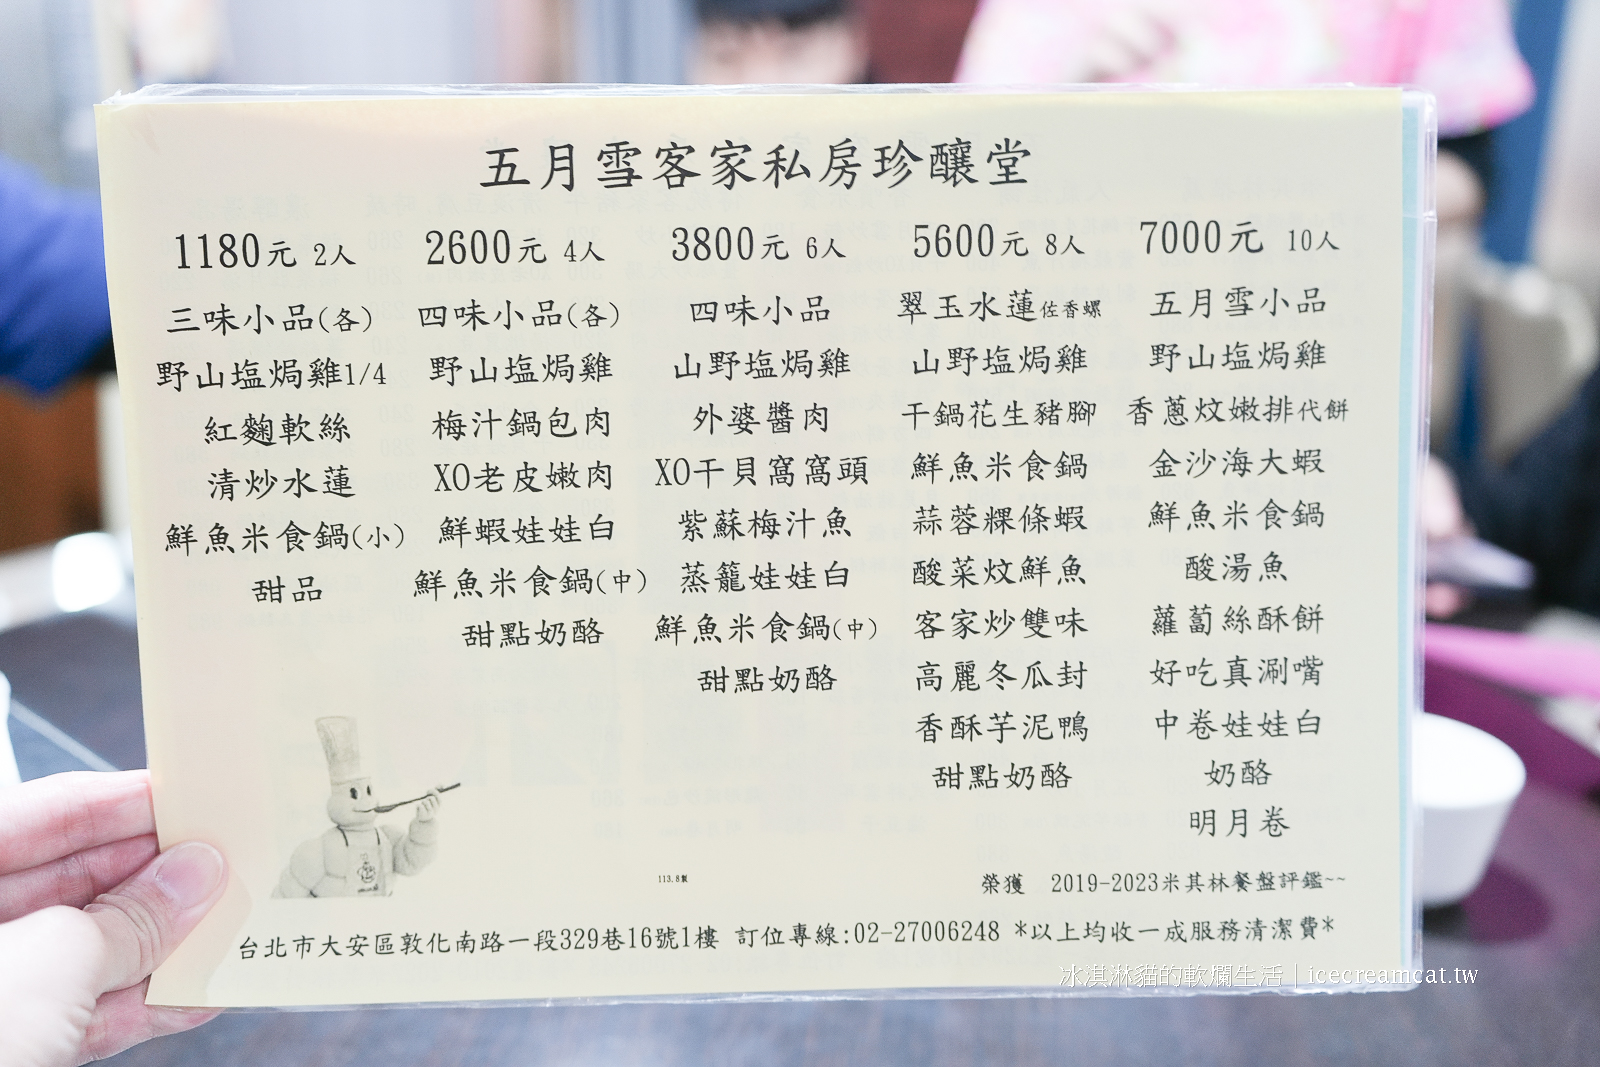 五月雪客家私房珍釀堂
1180元 2人
三味小品(各)
野山塩焗雞1/4
紅麴軟絲
清炒水蓮
鮮魚米食鍋(小)
甜品
2600元 4人
四味小品(各)
野山塩焗雞
梅汁鍋包肉
XO老皮嫩肉
鮮蝦娃娃白
鮮魚米食鍋(中)
甜點奶酪
3800元 6人
四味小品
山野塩焗雞
外婆醬肉
XO干貝窩窩頭
紫蘇梅汁魚
蒸籠娃娃白
鮮魚米食鍋(中)
甜點奶酪
5600元 8人
翠玉水蓮佐香螺
山野塩焗雞
干鍋花生豬腳
鮮魚米食鍋
蒜蓉粿條蝦
酸菜炆鮮魚
客家炒雙味
高麗冬瓜封
香酥芋泥鴨
甜點奶酪
7000元 10人
五月雪小品
野山塩焗雞
香蔥炆嫩排代餅
金沙海大蝦
鮮魚米食鍋
酸湯魚
蘿蔔絲酥餅
好吃真涮嘴
中卷娃娃白
奶酪
明月卷
113.8製
榮獲 2019-2023米其林餐盤評鑑~~
台北市大安區敦化南路一段329巷16號1樓 訂位專線:02-27006248 *以上均收一成服務清潔費*
冰淇淋貓的軟爛生活|icecreamcat.tw